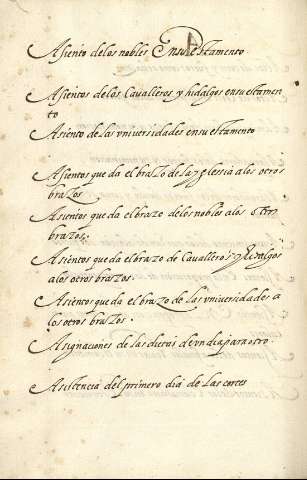 Asiento delos nobles Ensu estamento
Asientos delos Cavalleros y hidalgos ensu estamen
to
Asiento de las vniversidades ensu estamento
Asientos que da el brazo dela yglessia alos otros
brazos
Asientos que da el brazo delos nobles alos otros
brazos.
Asientos que da el brazo de Cavalleros y Hidalgos
alos otros brazos.
Asientos que da el brazo de las vniversidades a
los otros brazos.
Asignaciones de las dietas de vn dia para otro.
Asistencia del primero dia de las cortes